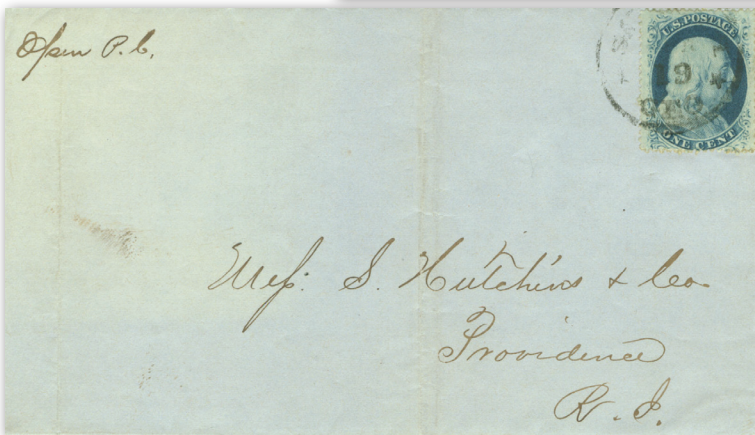 Open P.C.
U.S. POSTAGE
19
DEC
ONE CENT
Mess: S. Hutchins & Co.
Providence
R. I.